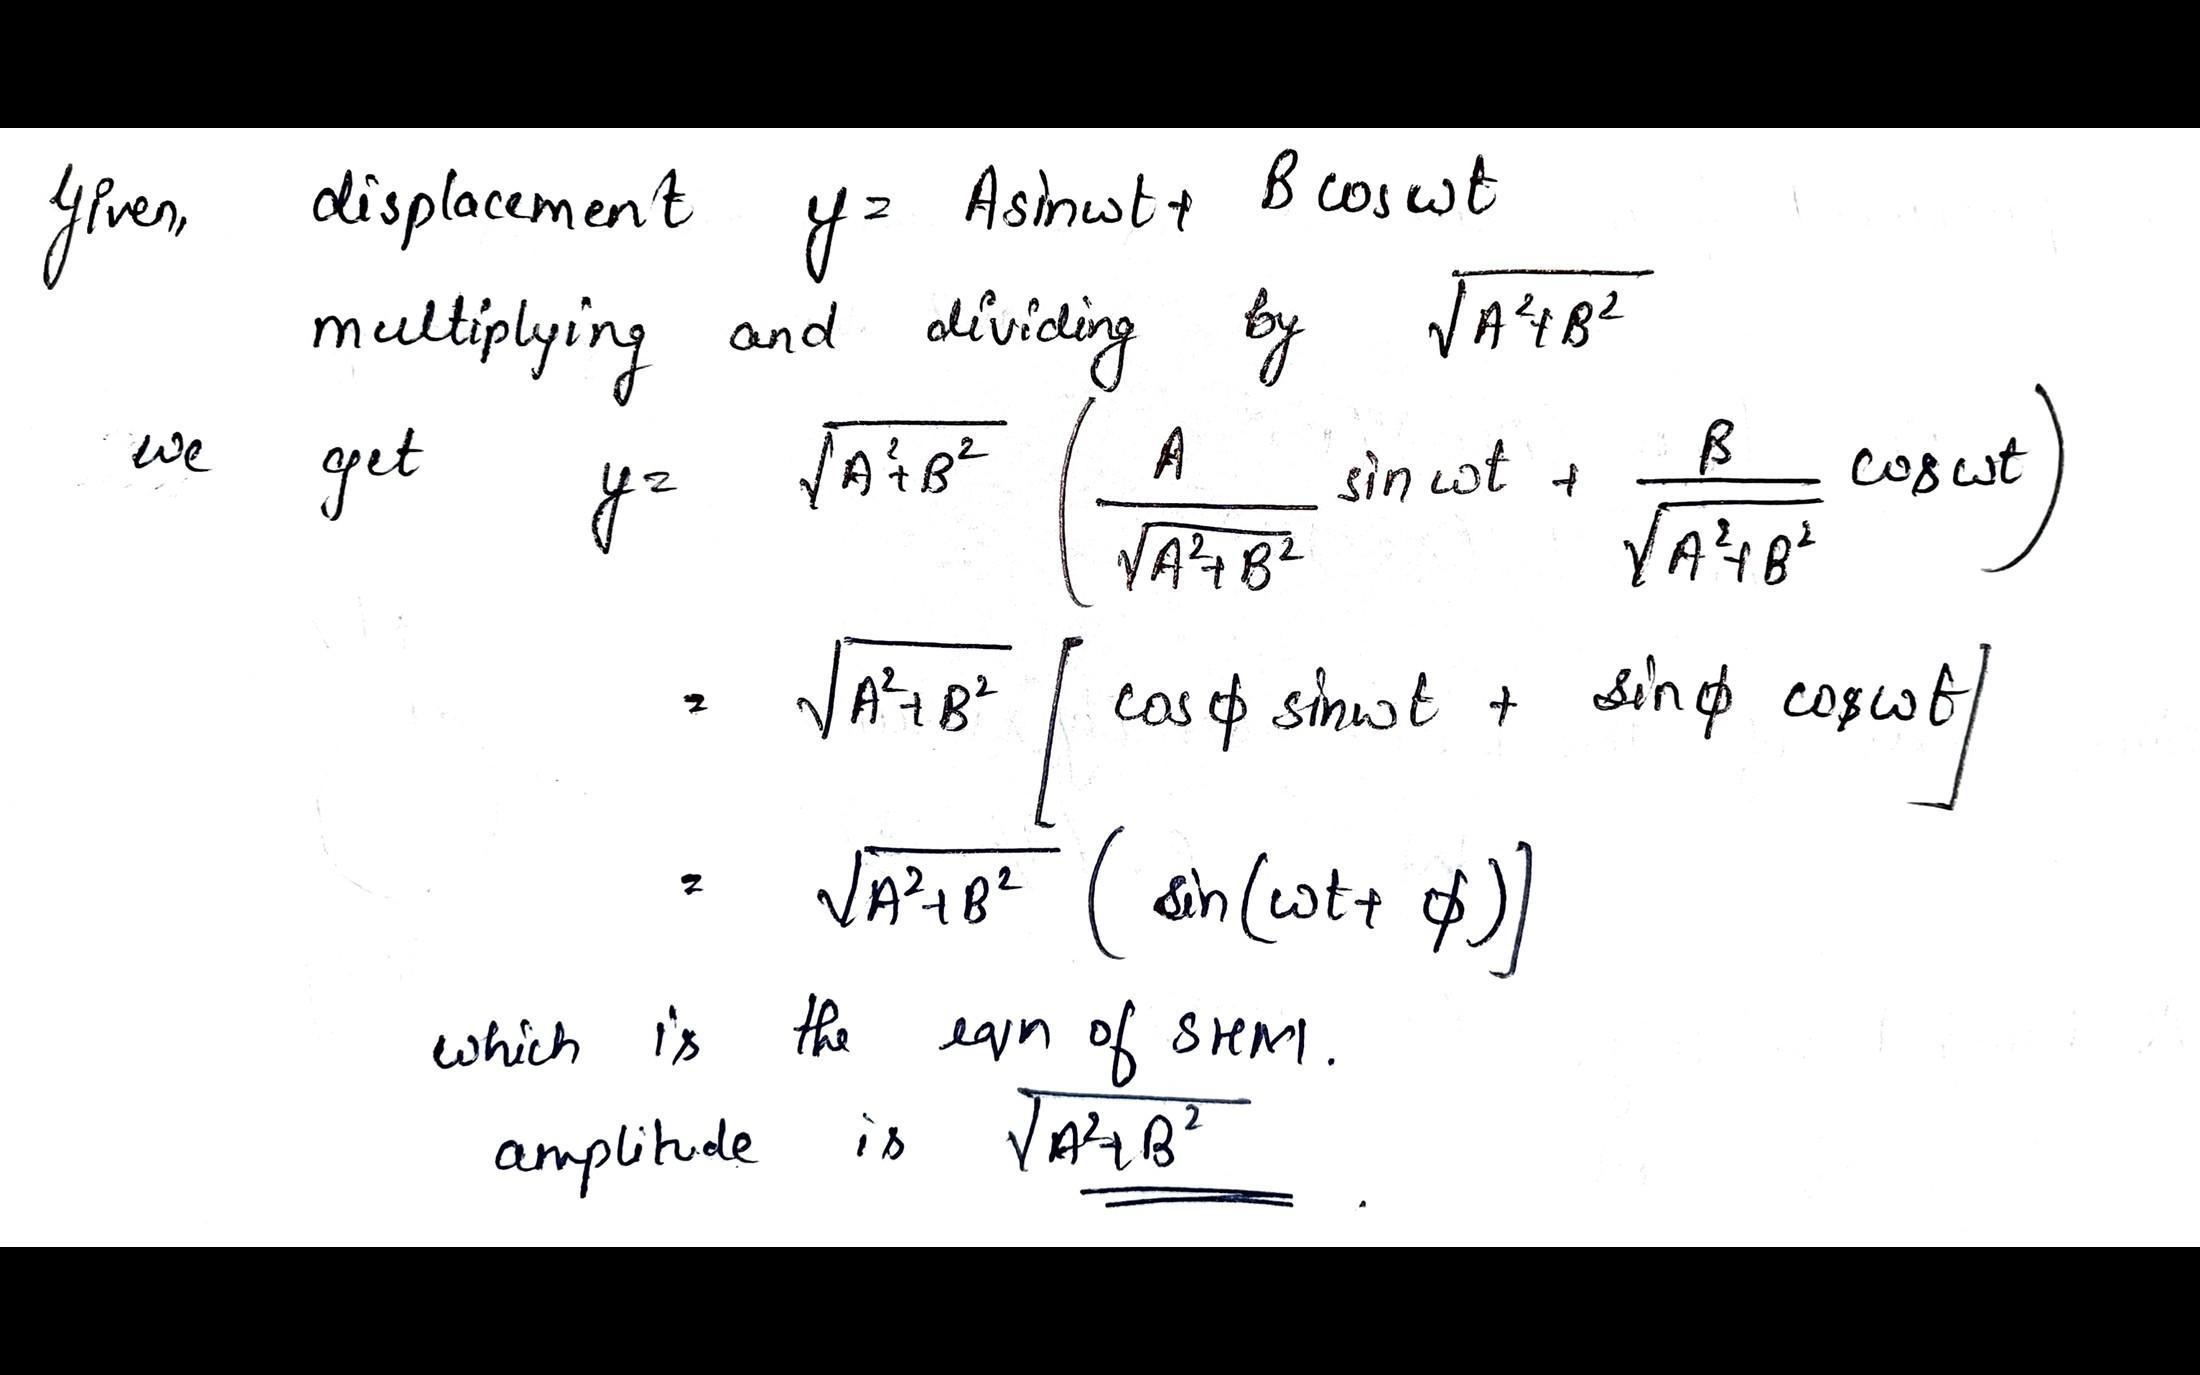 Given, displacement y = A sin ωt + B cos ωt
multiplying and dividing by √(A²+B²)
we get y = √(A²+B²) ( A/√(A²+B²) sin ωt + B/√(A²+B²) cos ωt )
= √(A²+B²) [ cos ϕ sin ωt + sin ϕ cos ωt ]
= √(A²+B²) ( sin(ωt + ϕ) ]
which is the eqn of SHM.
amplitude is √(A²+B²) .